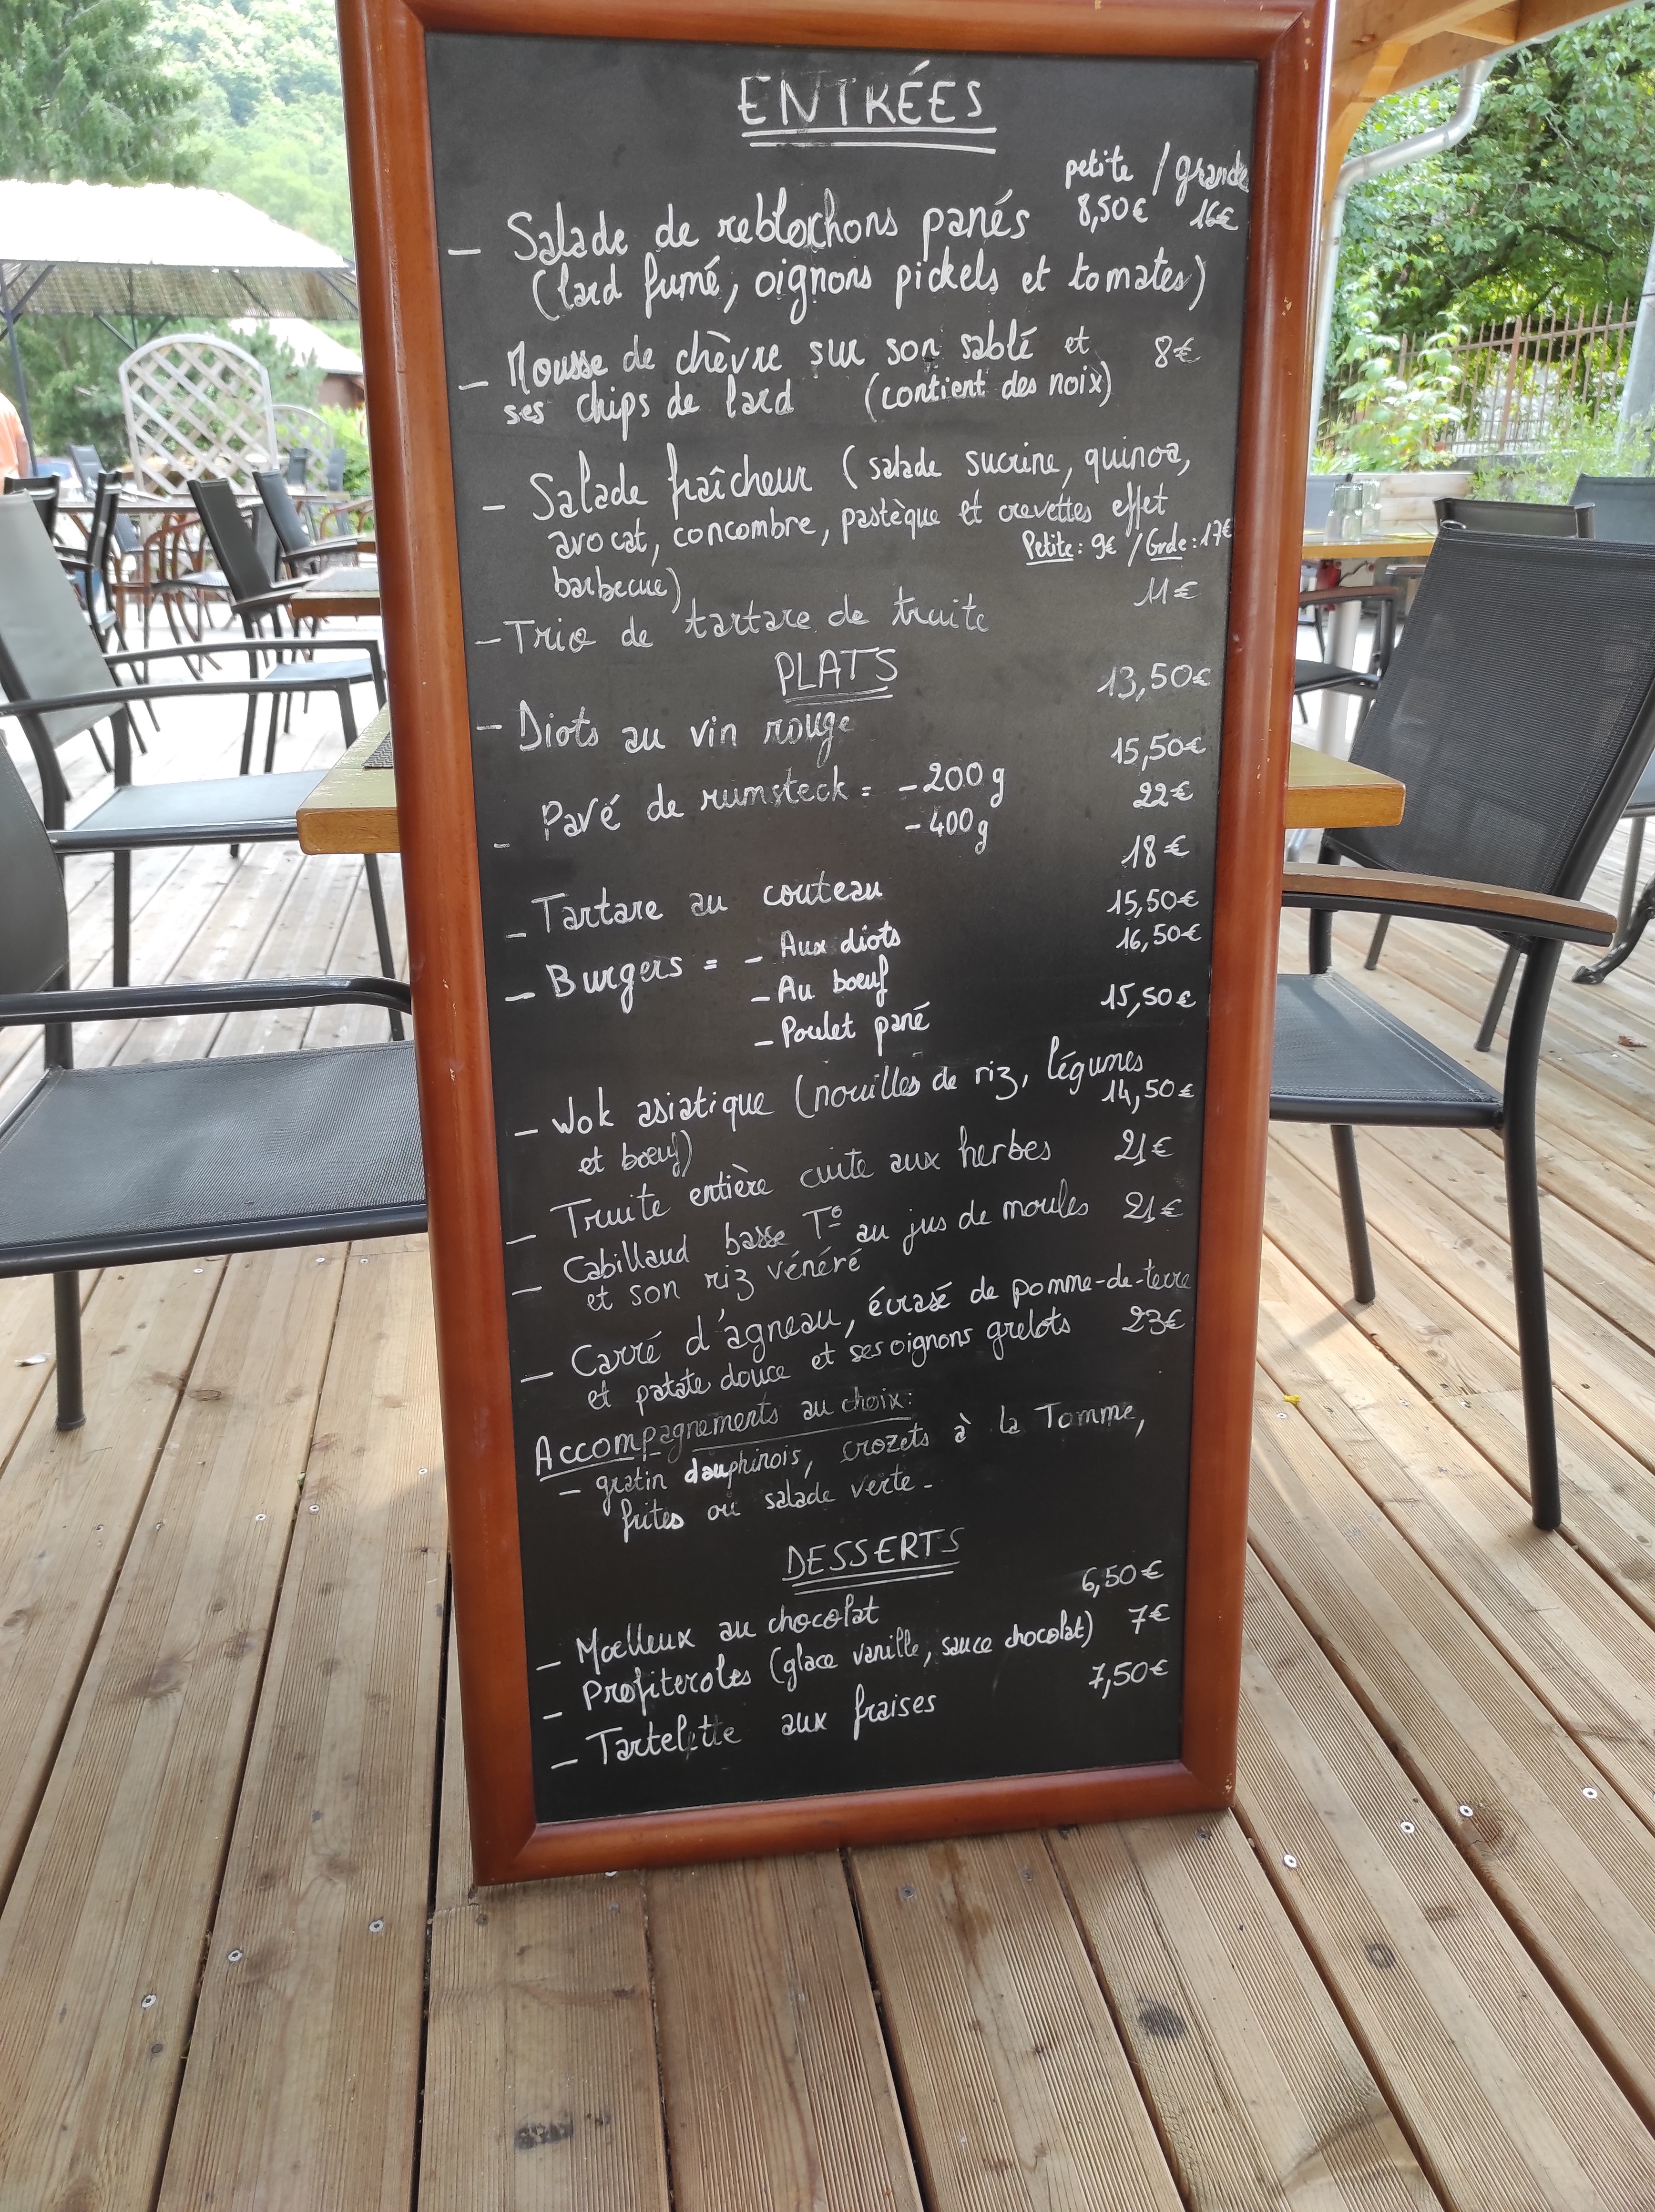 ENTRÉES
petite / grande
- Salade de reblochons panés 8,50€ 16€
(lard fumé, oignons pickels et tomates)
- Mousse de chèvre sur son sablé et 8€
ses chips de lard (contient des noix)
- Salade fraîcheur (salade sucrine, quinoa,
avocat, concombre, pastèque et crevettes effet
barbecue) Petite: 9€ / Grde: 17€
- Trio de tartare de truite 11€
PLATS
- Diots au vin rouge 13,50€
- Pavé de rumsteck = - 200g 15,50€
- 400g 22€
- Tartare au couteau 18€
- Burgers = - Aux diots 15,50€
- Au boeuf 16,50€
- Poulet pané 15,50€
- Wok asiatique (nouilles de riz, légumes
et boeuf) 14,50€
- Truite entière cuite aux herbes 21€
- Cabillaud basse T° au jus de moules 21€
et son riz vénéré
- Carré d'agneau, écrasé de pomme-de-terre
et patate douce et ses oignons grelots 23€
Accompagnements au choix:
- gratin dauphinois, crozets à la Tomme,
frites ou salade verte.
DESSERTS
- Moelleux au chocolat 6,50€
- Profiteroles (glace vanille, sauce chocolat) 7€
- Tartelette aux fraises 7,50€